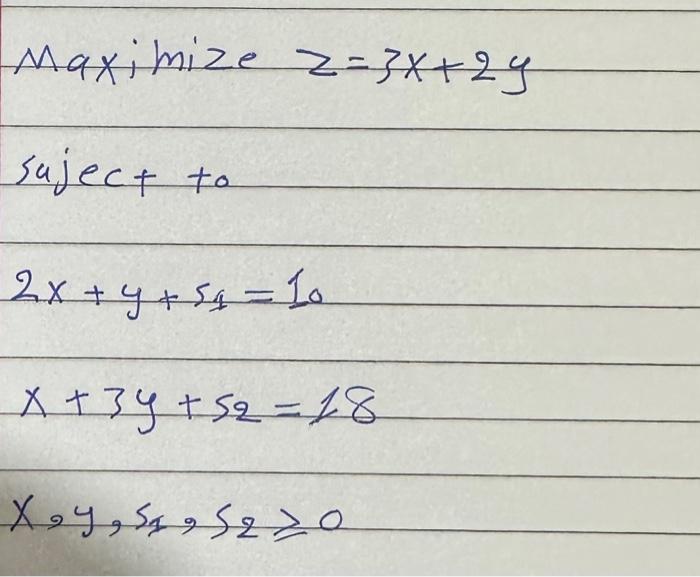 Maximize z=3x+2y
suject to
2x + y + s1 = 10
x + 3y + s2 = 18
x, y, s1, s2 ≥ 0